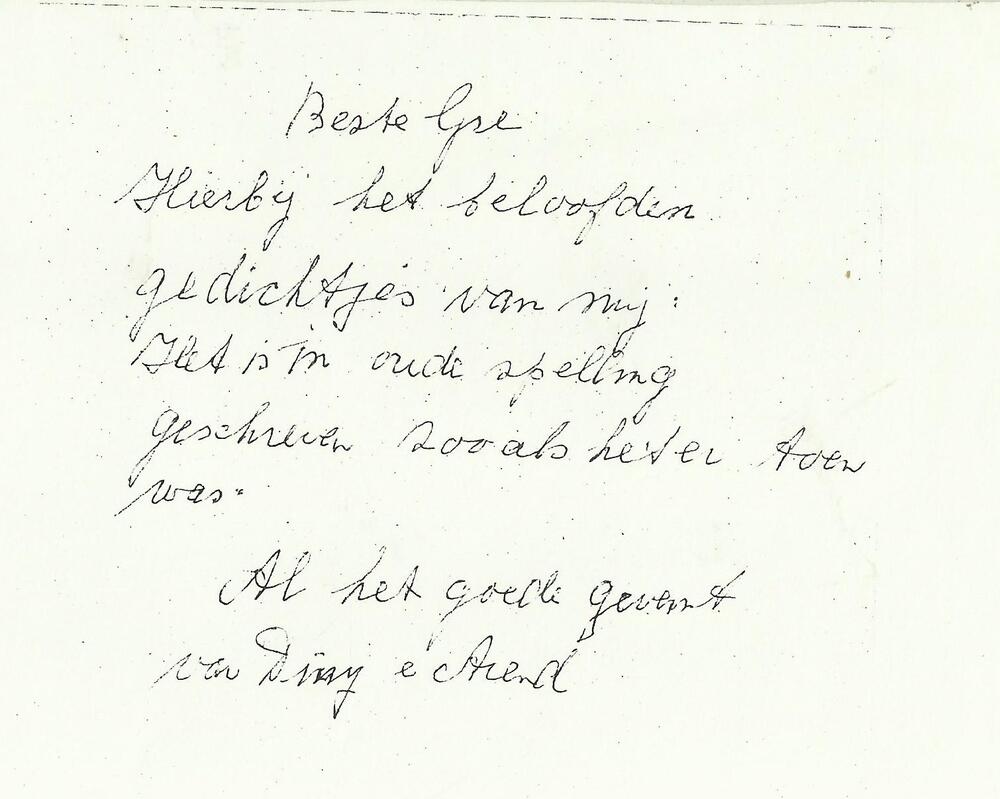 Beste Ype
Hierbij het beloofden
gedichtjes van mij:
Het is in oude spelling
geschreven zooals het er toen
was.
Al het goede gewenst
van Diny e Arend